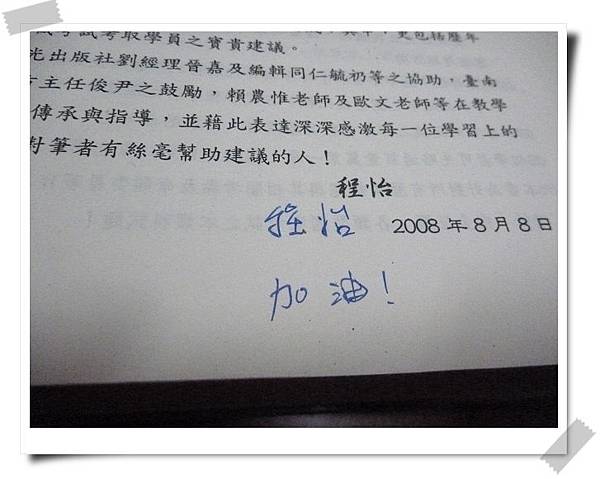 考試考取學員之寶貴建議。
光出版社劉經理晉嘉及編輯同仁毓礽等之協助,臺南
主任俊尹之鼓勵,賴農惟老師及歐文老師等在教學
傳承與指導,並藉此表達深深感激每一位學習上的
對筆者有絲毫幫助建議的人!
程怡
程怡 2008年8月8日
加油!